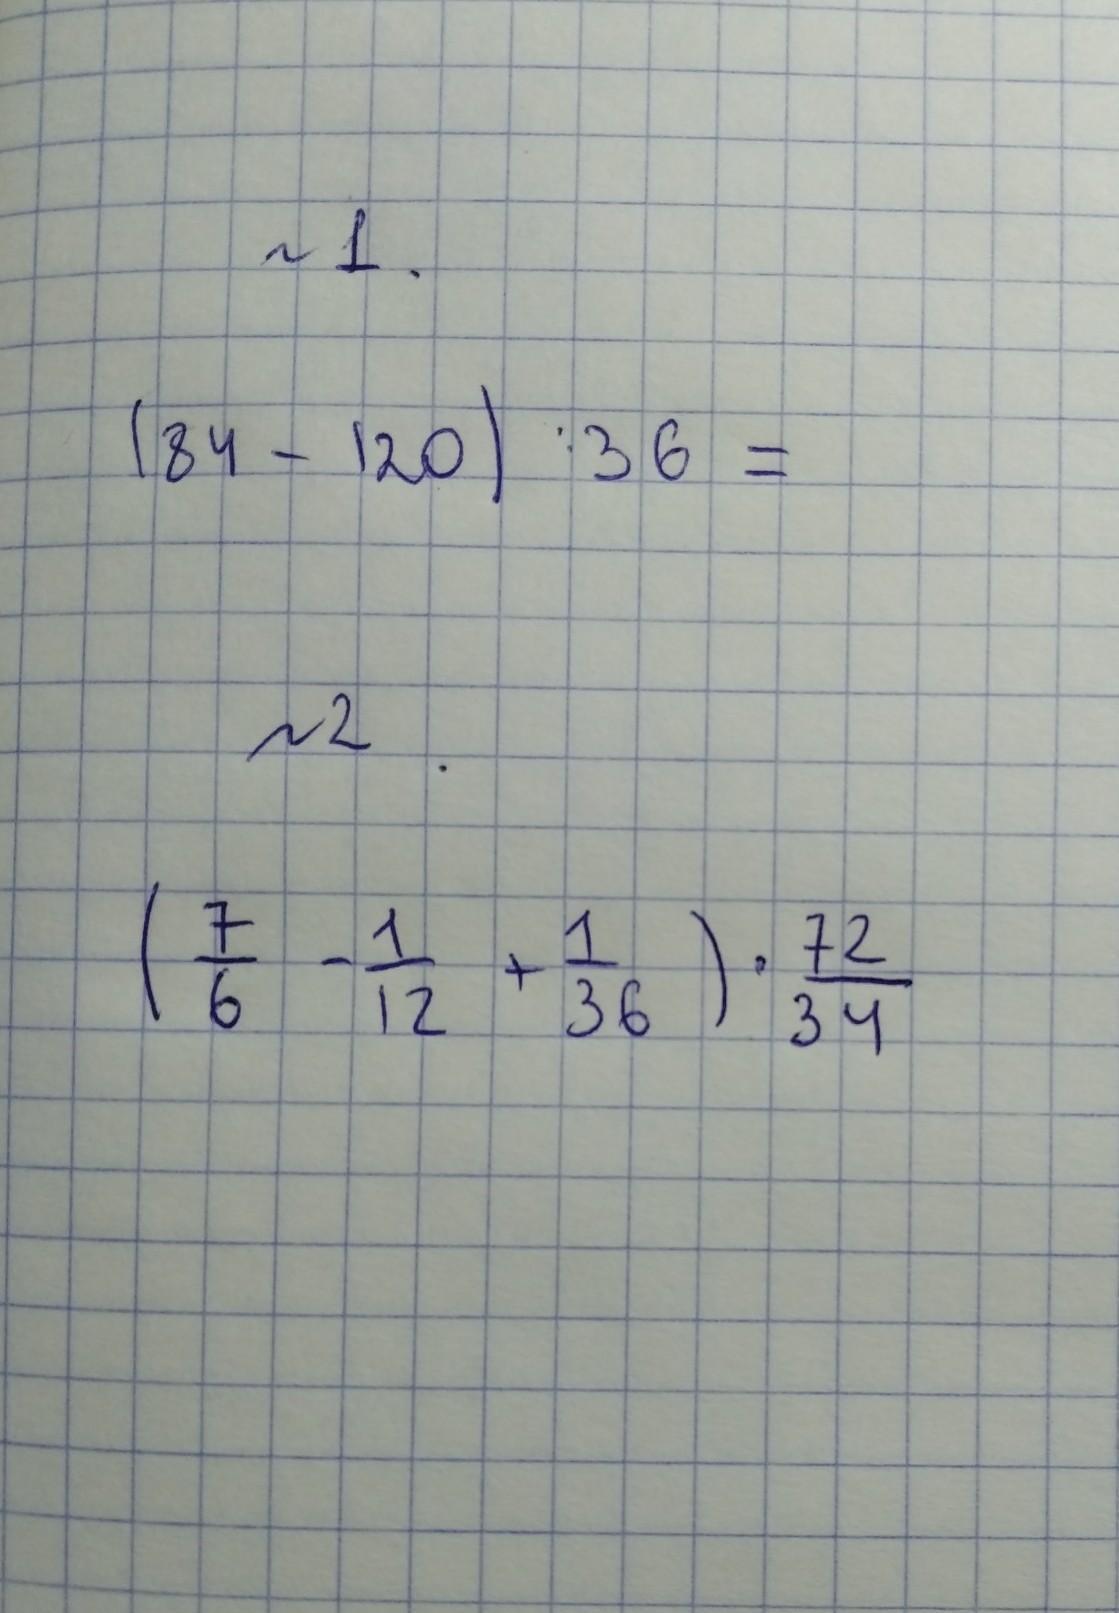 ~1.
(84 - 120) : 36 =
~2.
(7/6 - 1/12 + 1/36) · 72/34